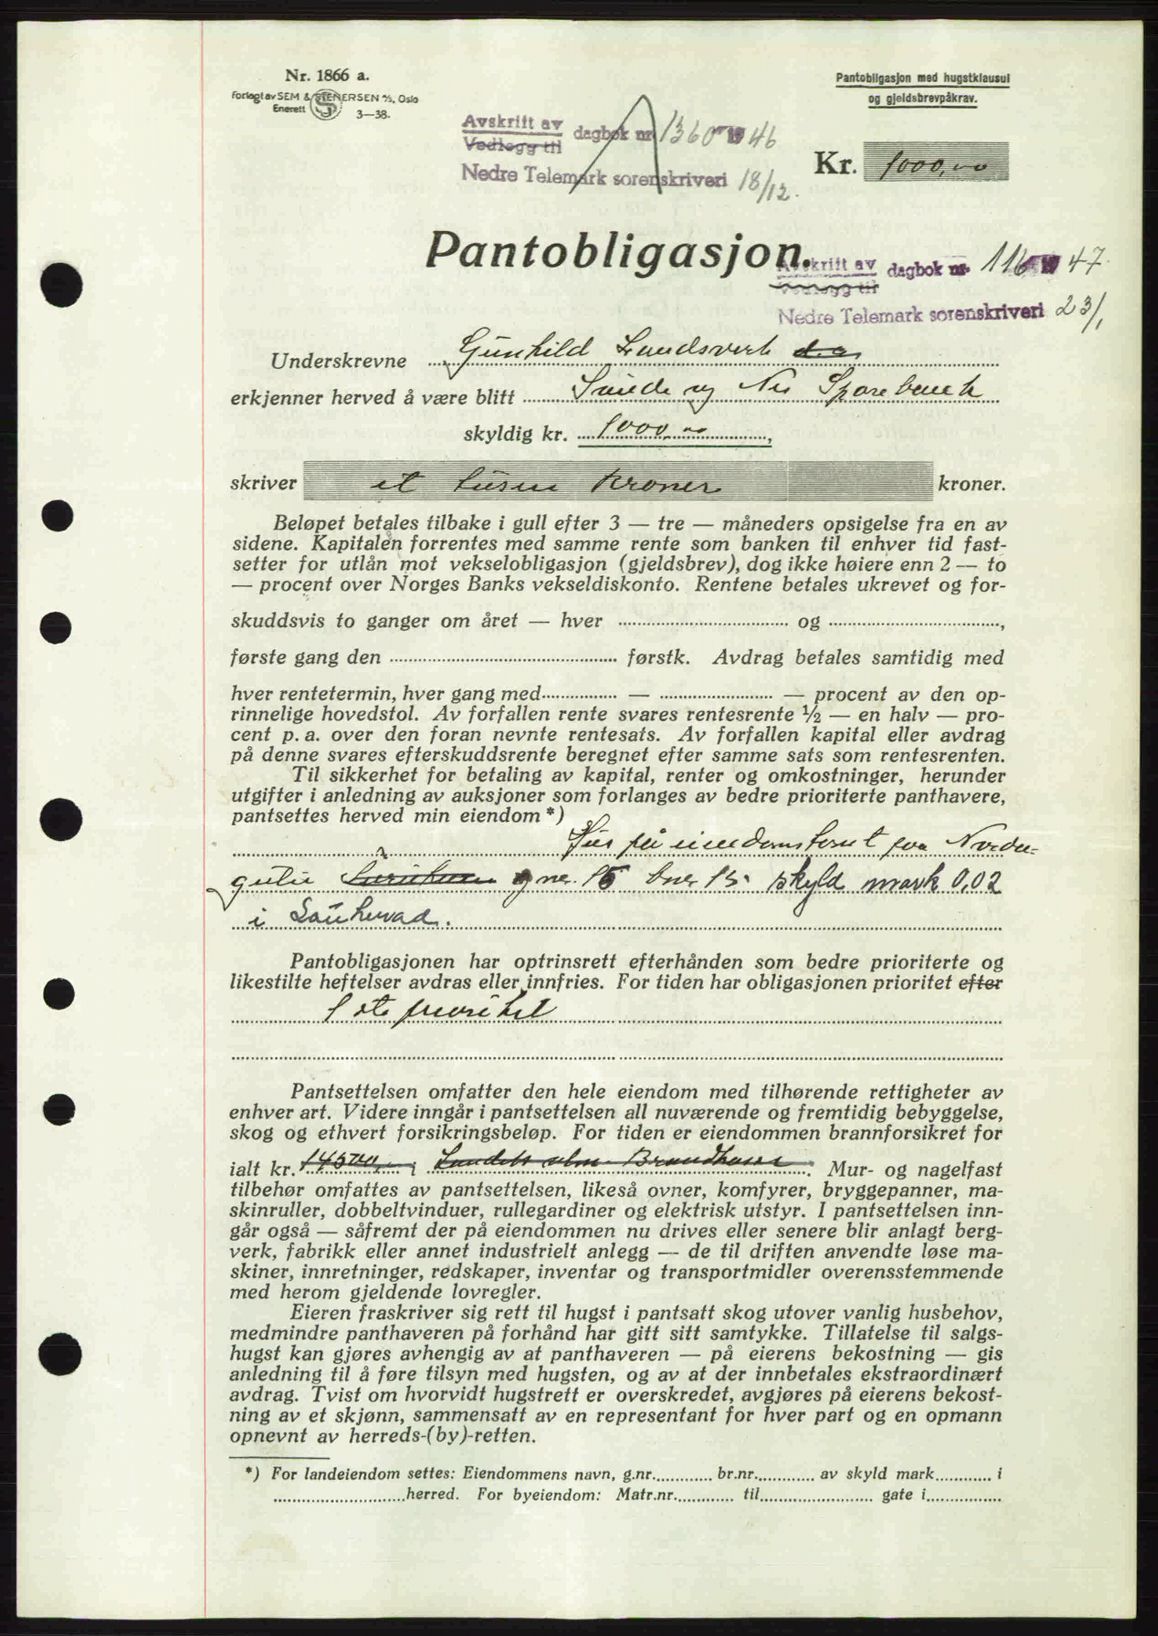 Nr. 1866 a.
Forlagt av SEM & STENERSEN A/S, Oslo
Enerett 3—38.
Pantobligasjon med hugstklausul
og gjeldsbrevpåkrav.
Avskrift av
Vedlegg til dagbok nr. 1360 19 46
Nedre Telemark sorenskriveri 18/12.
Kr. 1000,00
Pantobligasjon.
Avskrift av
Vedlegg til dagbok nr. 116 19 47.
Nedre Telemark sorenskriveri 23/1
Underskrevne Gunhild Landsverk
erkjenner herved å være blitt Saude og Nes Sparebank
skyldig kr. 1000,00,
skriver et tusen kroner kroner.
Beløpet betales tilbake i gull efter 3 — tre — måneders opsigelse fra en av
sidene. Kapitalen forrentes med samme rente som banken til enhver tid fast-
setter for utlån mot vekselobligasjon (gjeldsbrev), dog ikke høiere enn 2 — to
— procent over Norges Banks vekseldiskonto. Rentene betales ukrevet og for-
skuddsvis to ganger om året — hver og ,
første gang den førstk. Avdrag betales samtidig med
hver rentetermin, hver gang med — — procent av den op-
rinnelige hovedstol. Av forfallen rente svares rentesrente ½ — en halv — pro-
cent p. a. over den foran nevnte rentesats. Av forfallen kapital eller avdrag
på denne svares efterskuddsrente beregnet efter samme sats som rentesrenten.
Til sikkerhet for betaling av kapital, renter og omkostninger, herunder
utgifter i anledning av auksjoner som forlanges av bedre prioriterte panthavere,
pantsettes herved min eiendom *)
eiendomstomt paa Nordа-
gutu gnr. 15 bnr 15. skyld mark 0,02
i Sauherad.
Pantobligasjonen har optrinsrett efterhånden som bedre prioriterte og
likestilte heftelser avdras eller innfries. For tiden har obligasjonen prioritet efter
1ste prioritet
Pantsettelsen omfatter den hele eiendom med tilhørende rettigheter av
enhver art. Videre inngår i pantsettelsen all nuværende og fremtidig bebyggelse,
skog og ethvert forsikringsbeløp. For tiden er eiendommen brannforsikret for
ialt kr. 14500,- i Landets alm. Brandkasse. Mur- og nagelfast
tilbehør omfattes av pantsettelsen, likeså ovner, komfyrer, bryggepanner, ma-
skinruller, dobbeltvinduer, rullegardiner og elektrisk utstyr. I pantsettelsen inn-
går også — såfremt der på eiendommen nu drives eller senere blir anlagt berg-
verk, fabrikk eller annet industrielt anlegg — de til driften anvendte løse ma-
skiner, innretninger, redskaper, inventar og transportmidler overensstemmende
med herom gjeldende lovregler.
Eieren fraskriver sig rett til hugst i pantsatt skog utover vanlig husbehov,
medmindre panthaveren på forhånd har gitt sitt samtykke. Tillatelse til salgs-
hugst kan gjøres avhengig av at panthaveren — på eierens bekostning — gis
anledning til å føre tilsyn med hugsten, og av at der innbetales ekstraordinært
avdrag. Tvist om hvorvidt hugstrett er overskredet, avgjøres på eierens bekost-
ning av et skjønn, sammensatt av en representant for hver part og en opmann
opnevnt av herreds-(by)-retten.
*) For landeiendom settes: Eiendommens navn, g.nr. br.nr. av skyld mark i
herred. For byeiendom: Matr.nr. til gate i